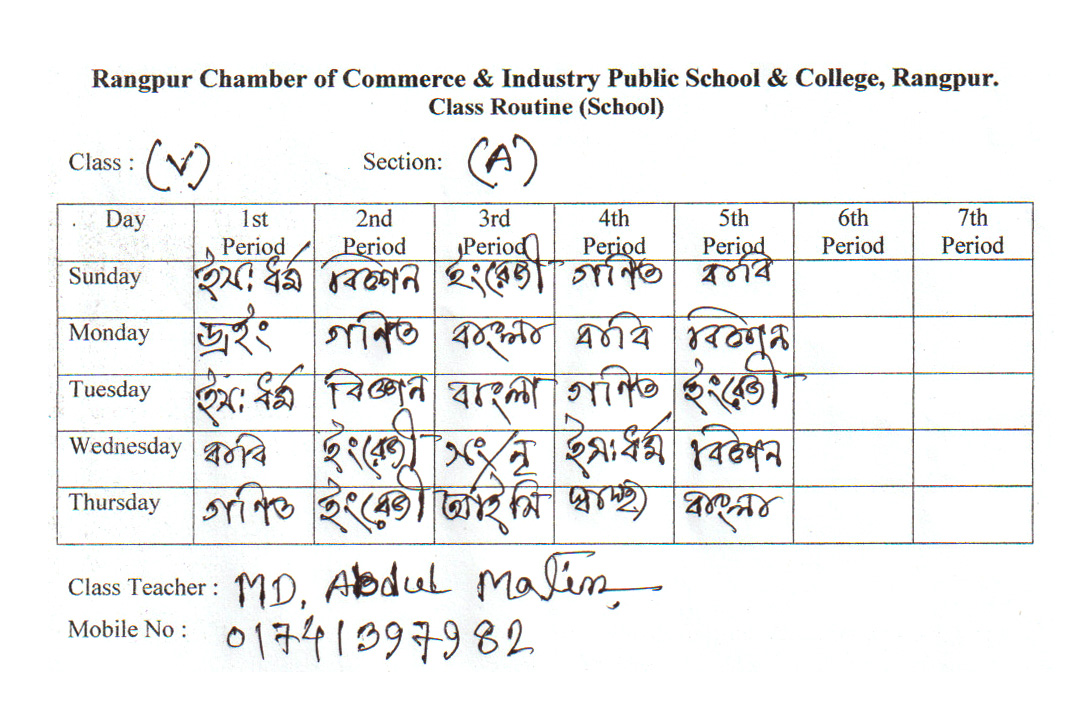 Rangpur Chamber of Commerce & Industry Public School & College, Rangpur.
Class Routine (School)
Class : (V) Section: (A)
Day 1st Period 2nd Period 3rd Period 4th Period 5th Period 6th Period 7th Period
Sunday ইস: ধর্ম বিজ্ঞান ইংরেজী গণিত বাবি
Monday ড্রইং গণিত বাংলা বাবি বিজ্ঞান
Tuesday ইস: ধর্ম বিজ্ঞান বাংলা গণিত ইংরেজী
Wednesday বাবি ইংরেজী সং/নৃ ইস: ধর্ম বিজ্ঞান
Thursday গণিত ইংরেজী আইসি স্বাস্থ্য বাংলা
Class Teacher : MD. Abdul Matin
Mobile No : 01741397982